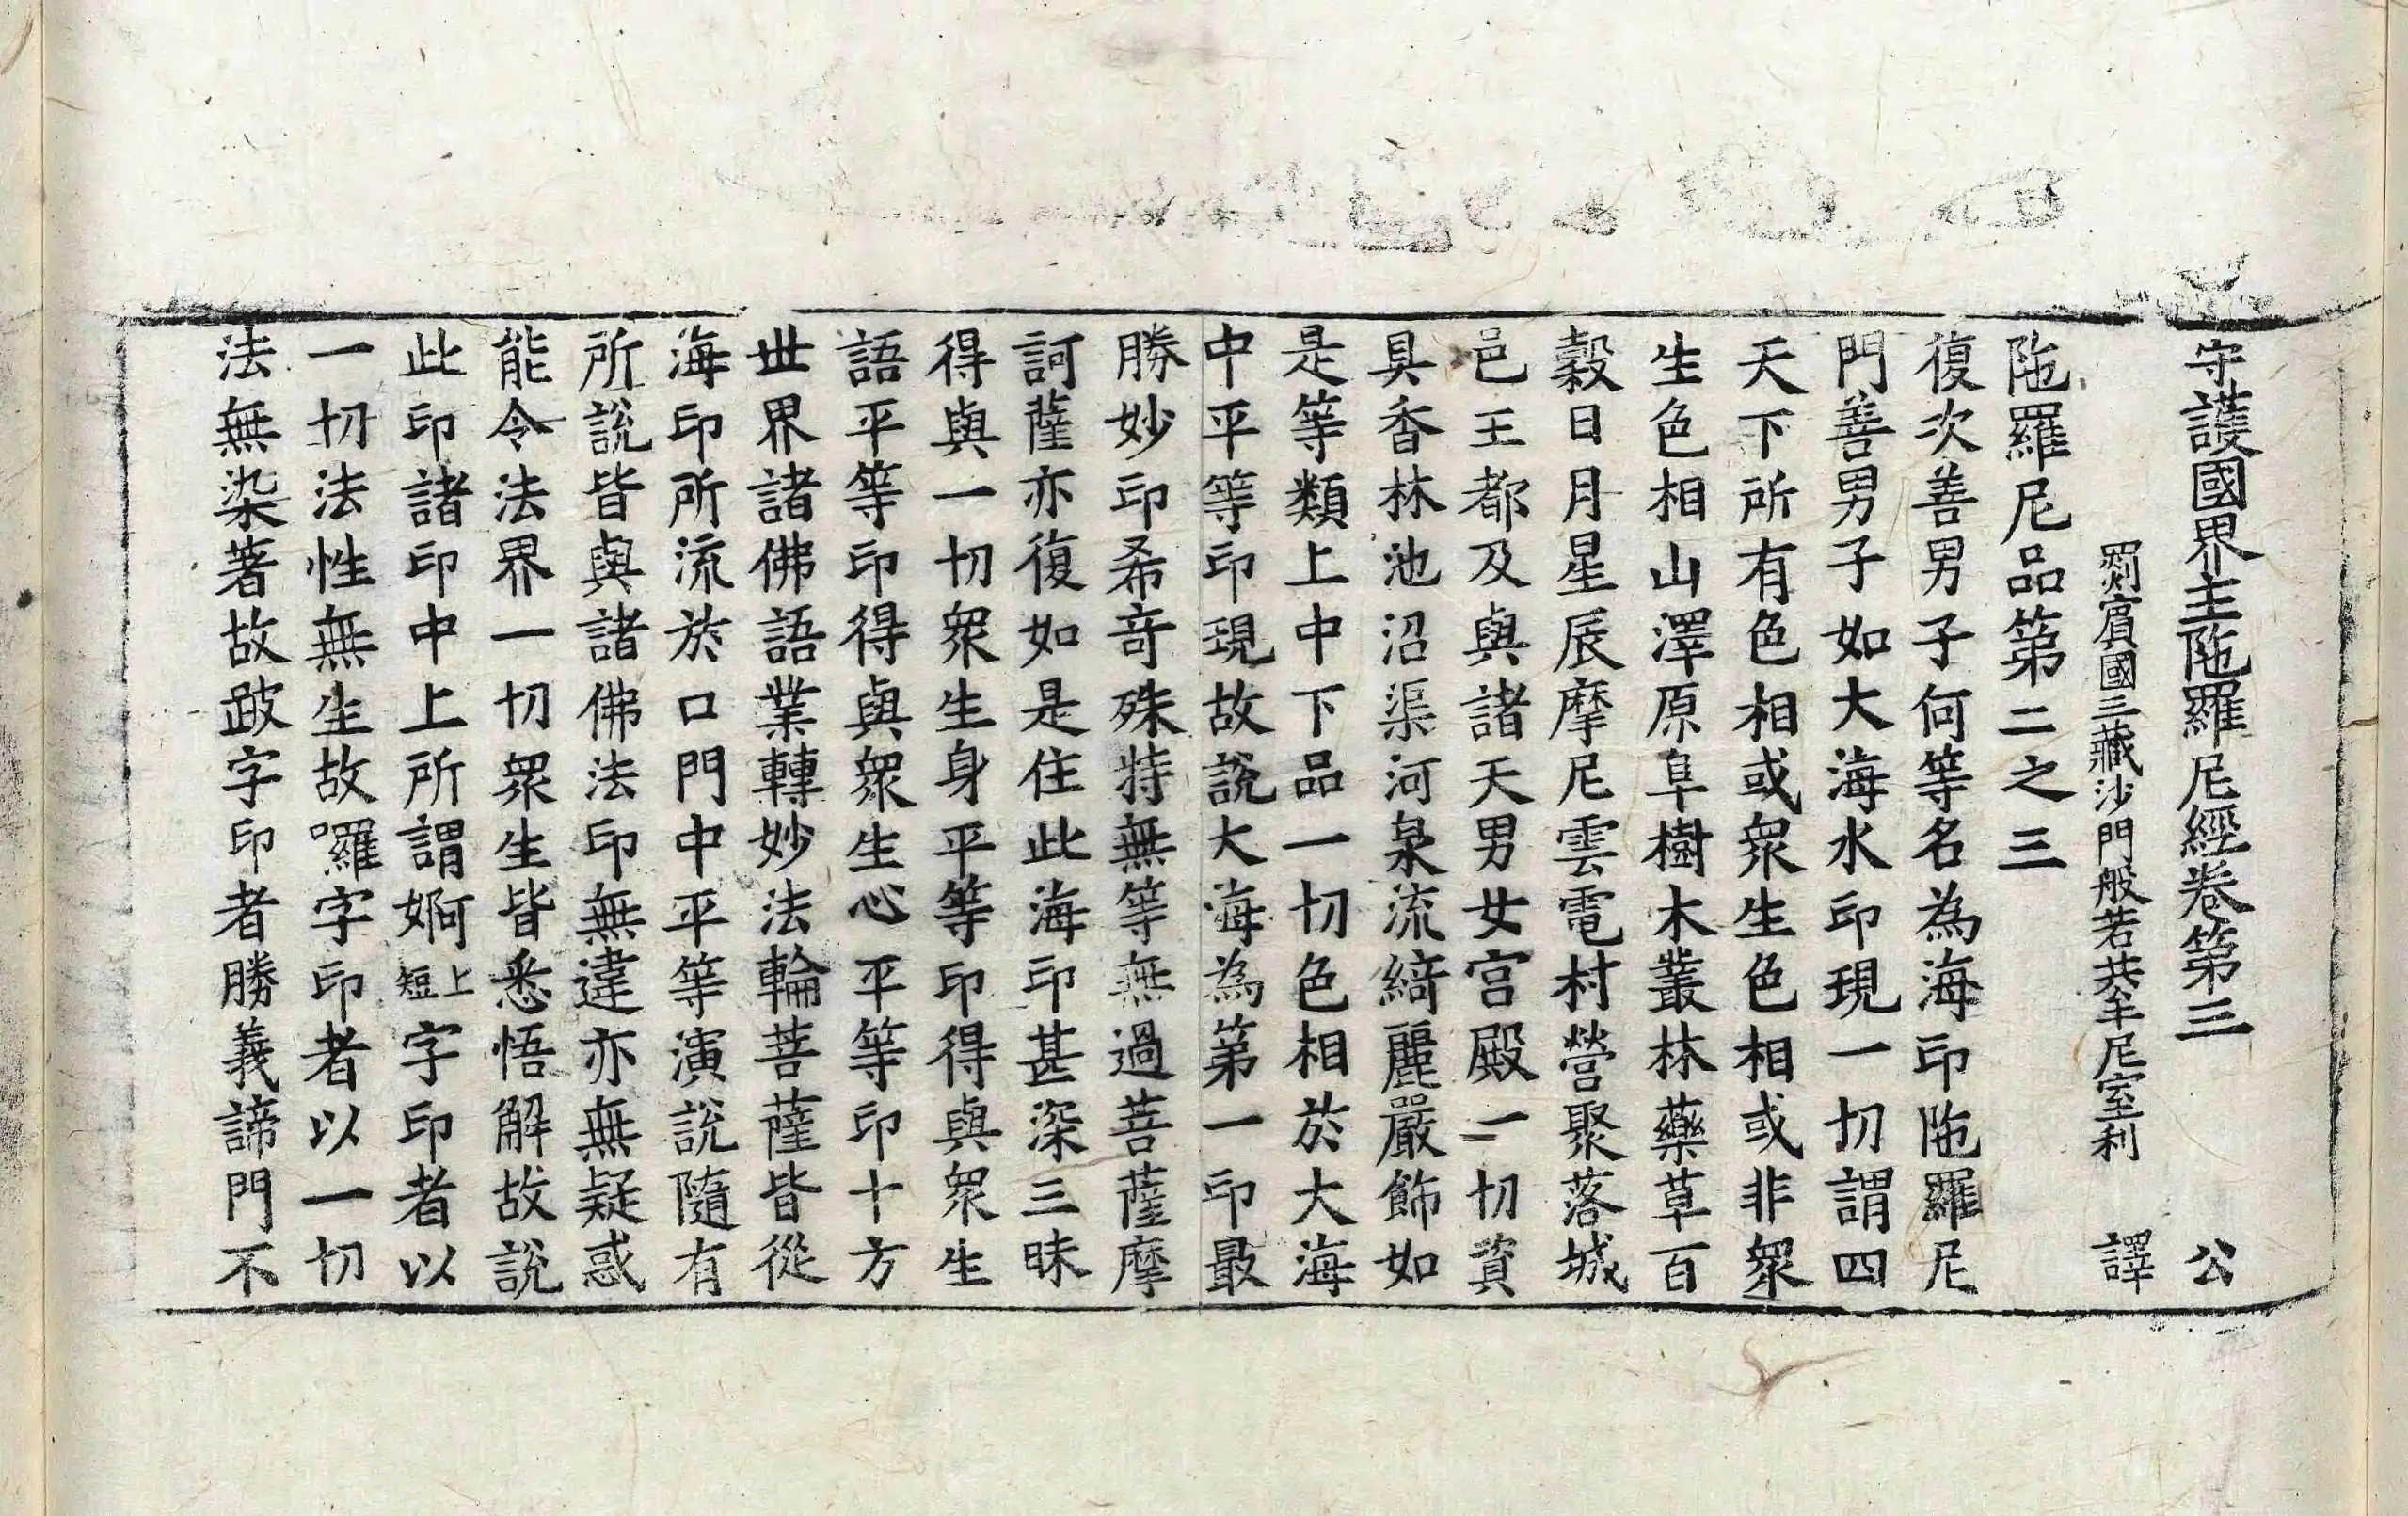 守護國界主陁羅尼經卷第三 公
罽賓國三藏沙門般若共牟尼室利 譯
陁羅尼品第二之三
復次善男子何等名為海印陁羅尼
門善男子如大海水印現一切謂四
天下所有色相或衆生色相或非衆
生色相山澤原阜樹木叢林藥草百
穀日月星辰摩尼雲電村營聚落城
邑王都及與諸天男女宫殿一切資
具香林池沼渠河泉流綺麗嚴飾如
是等類上中下品一切色相於大海
中平等印現故說大海為第一印最
勝妙印希奇殊特無等無過菩薩摩
訶薩亦復如是住此海印甚深三昧
得與一切衆生身平等印得與衆生
語平等印得與衆生心平等印十方
世界諸佛語業轉妙法輪菩薩皆從
海印所流於口門中平等演說隨有
所說皆與諸佛法印無違亦無疑惑
能令法界一切衆生皆悉悟解故說
此印諸印中上所謂婀上短字印者以
一切法性無生故囉字印者以一切
法無染著故跛字印者勝義諦門不